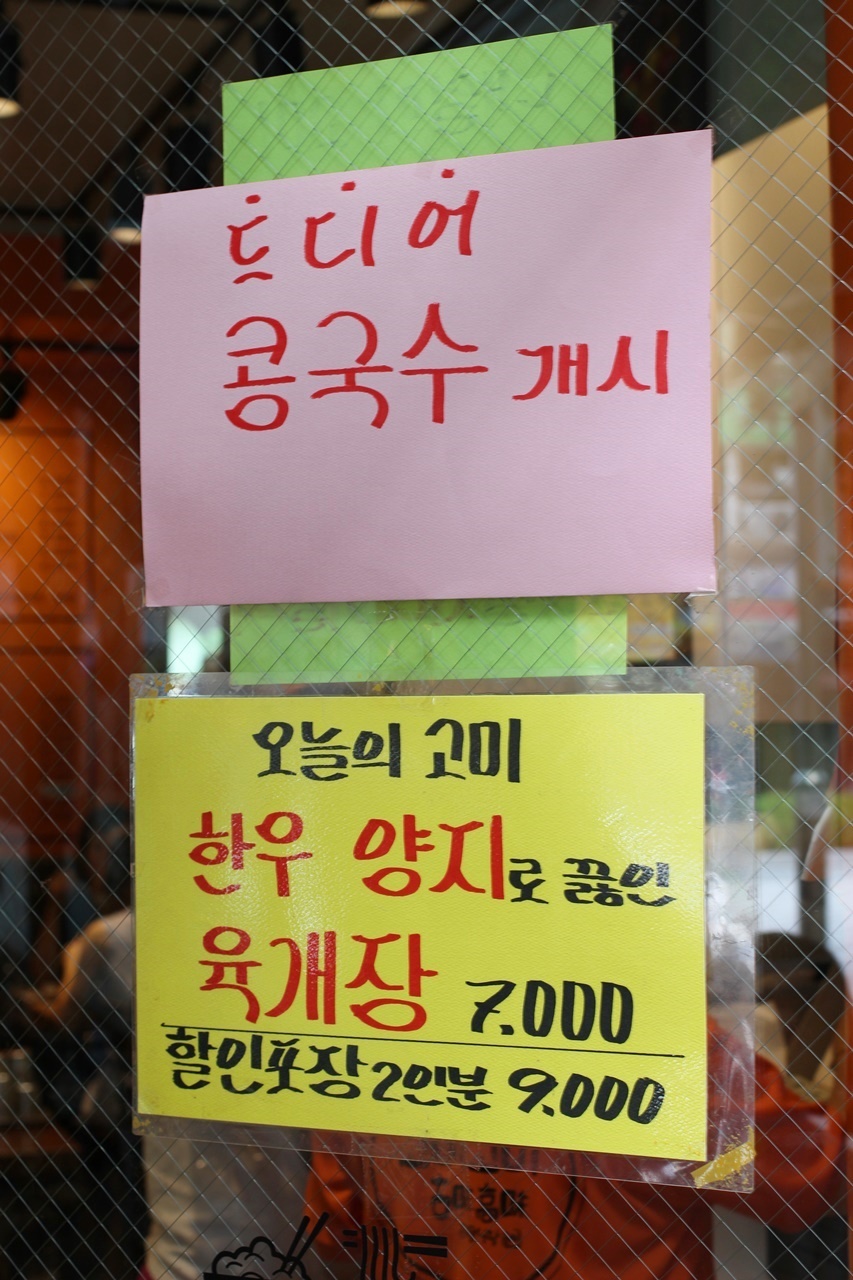 드디어
콩국수 개시
오늘의 고미
한우 양지로 끓인
육개장 7.000
할인포장 2인분 9.000